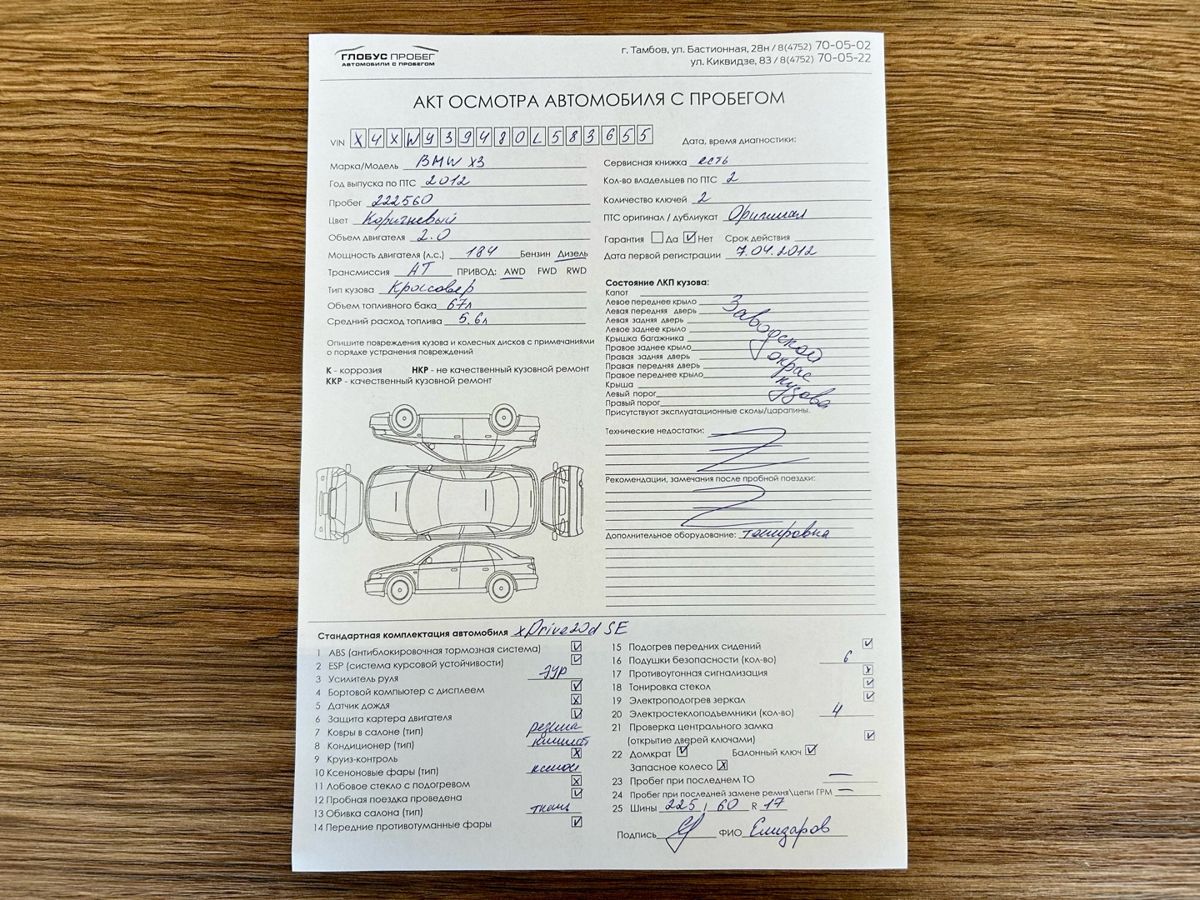 ГЛОБУС ПРОБЕГ
АВТОМОБИЛИ С ПРОБЕГОМ
г. Тамбов, ул. Бастионная, 28н / 8(4752) 70-05-02
ул. Киквидзе, 83 / 8(4752) 70-05-22
АКТ ОСМОТРА АВТОМОБИЛЯ С ПРОБЕГОМ
VIN X4XWY39480L583655
Дата, время диагностики:
Марка/Модель BMW X3
Год выпуска по ПТС 2012
Пробег 222560
Цвет Коричневый
Объем двигателя 2.0
Мощность двигателя (л.с.) 184 Бензин Дизель
Трансмиссия АТ ПРИВОД: AWD FWD RWD
Тип кузова Кроссовер
Объем топливного бака 67л
Средний расход топлива 5.6л
Опишите повреждения кузова и колесных дисков с примечаниями
о порядке устранения повреждений
К - коррозия НКР - не качественный кузовной ремонт
ККР - качественный кузовной ремонт
Сервисная книжка есть
Кол-во владельцев по ПТС 2
Количество ключей 2
ПТС оригинал / дубликат Оригинал
Гарантия Да Нет Срок действия
Дата первой регистрации 7.04.2012
Состояние ЛКП кузова:
Капот
Левое переднее крыло
Левая передняя дверь
Левая задняя дверь
Левое заднее крыло
Крышка багажника
Правое заднее крыло
Правая задняя дверь
Правая передняя дверь
Правое переднее крыло
Крыша
Левый порог
Правый порог
Заводской
окрас
кузова
Присутствуют эксплуатационные сколы/царапины.
Технические недостатки:
Рекомендации, замечания после пробной поездки:
Дополнительное оборудование: тонировка
Стандартная комплектация автомобиля xDrive20d SE
1 ABS (антиблокировочная тормозная система)
2 ESP (система курсовой устойчивости)
3 Усилитель руля ЭУР
4 Бортовой компьютер с дисплеем
5 Датчик дождя
6 Защита картера двигателя
7 Ковры в салоне (тип) резина
8 Кондиционер (тип) климат
9 Круиз-контроль
10 Ксеноновые фары (тип) ксенон
11 Лобовое стекло с подогревом
12 Пробная поездка проведена
13 Обивка салона (тип) ткань
14 Передние противотуманные фары
15 Подогрев передних сидений
16 Подушки безопасности (кол-во) 6
17 Противоугонная сигнализация
18 Тонировка стекол
19 Электроподогрев зеркал
20 Электростеклоподъемники (кол-во) 4
21 Проверка центрального замка
(открытие дверей ключами)
22 Домкрат Балонный ключ
Запасное колесо
23 Пробег при последнем ТО —
24 Пробег при последней замене ремня\цепи ГРМ —
25 Шины 225 / 60 R 17
Подпись ФИО Елизаров